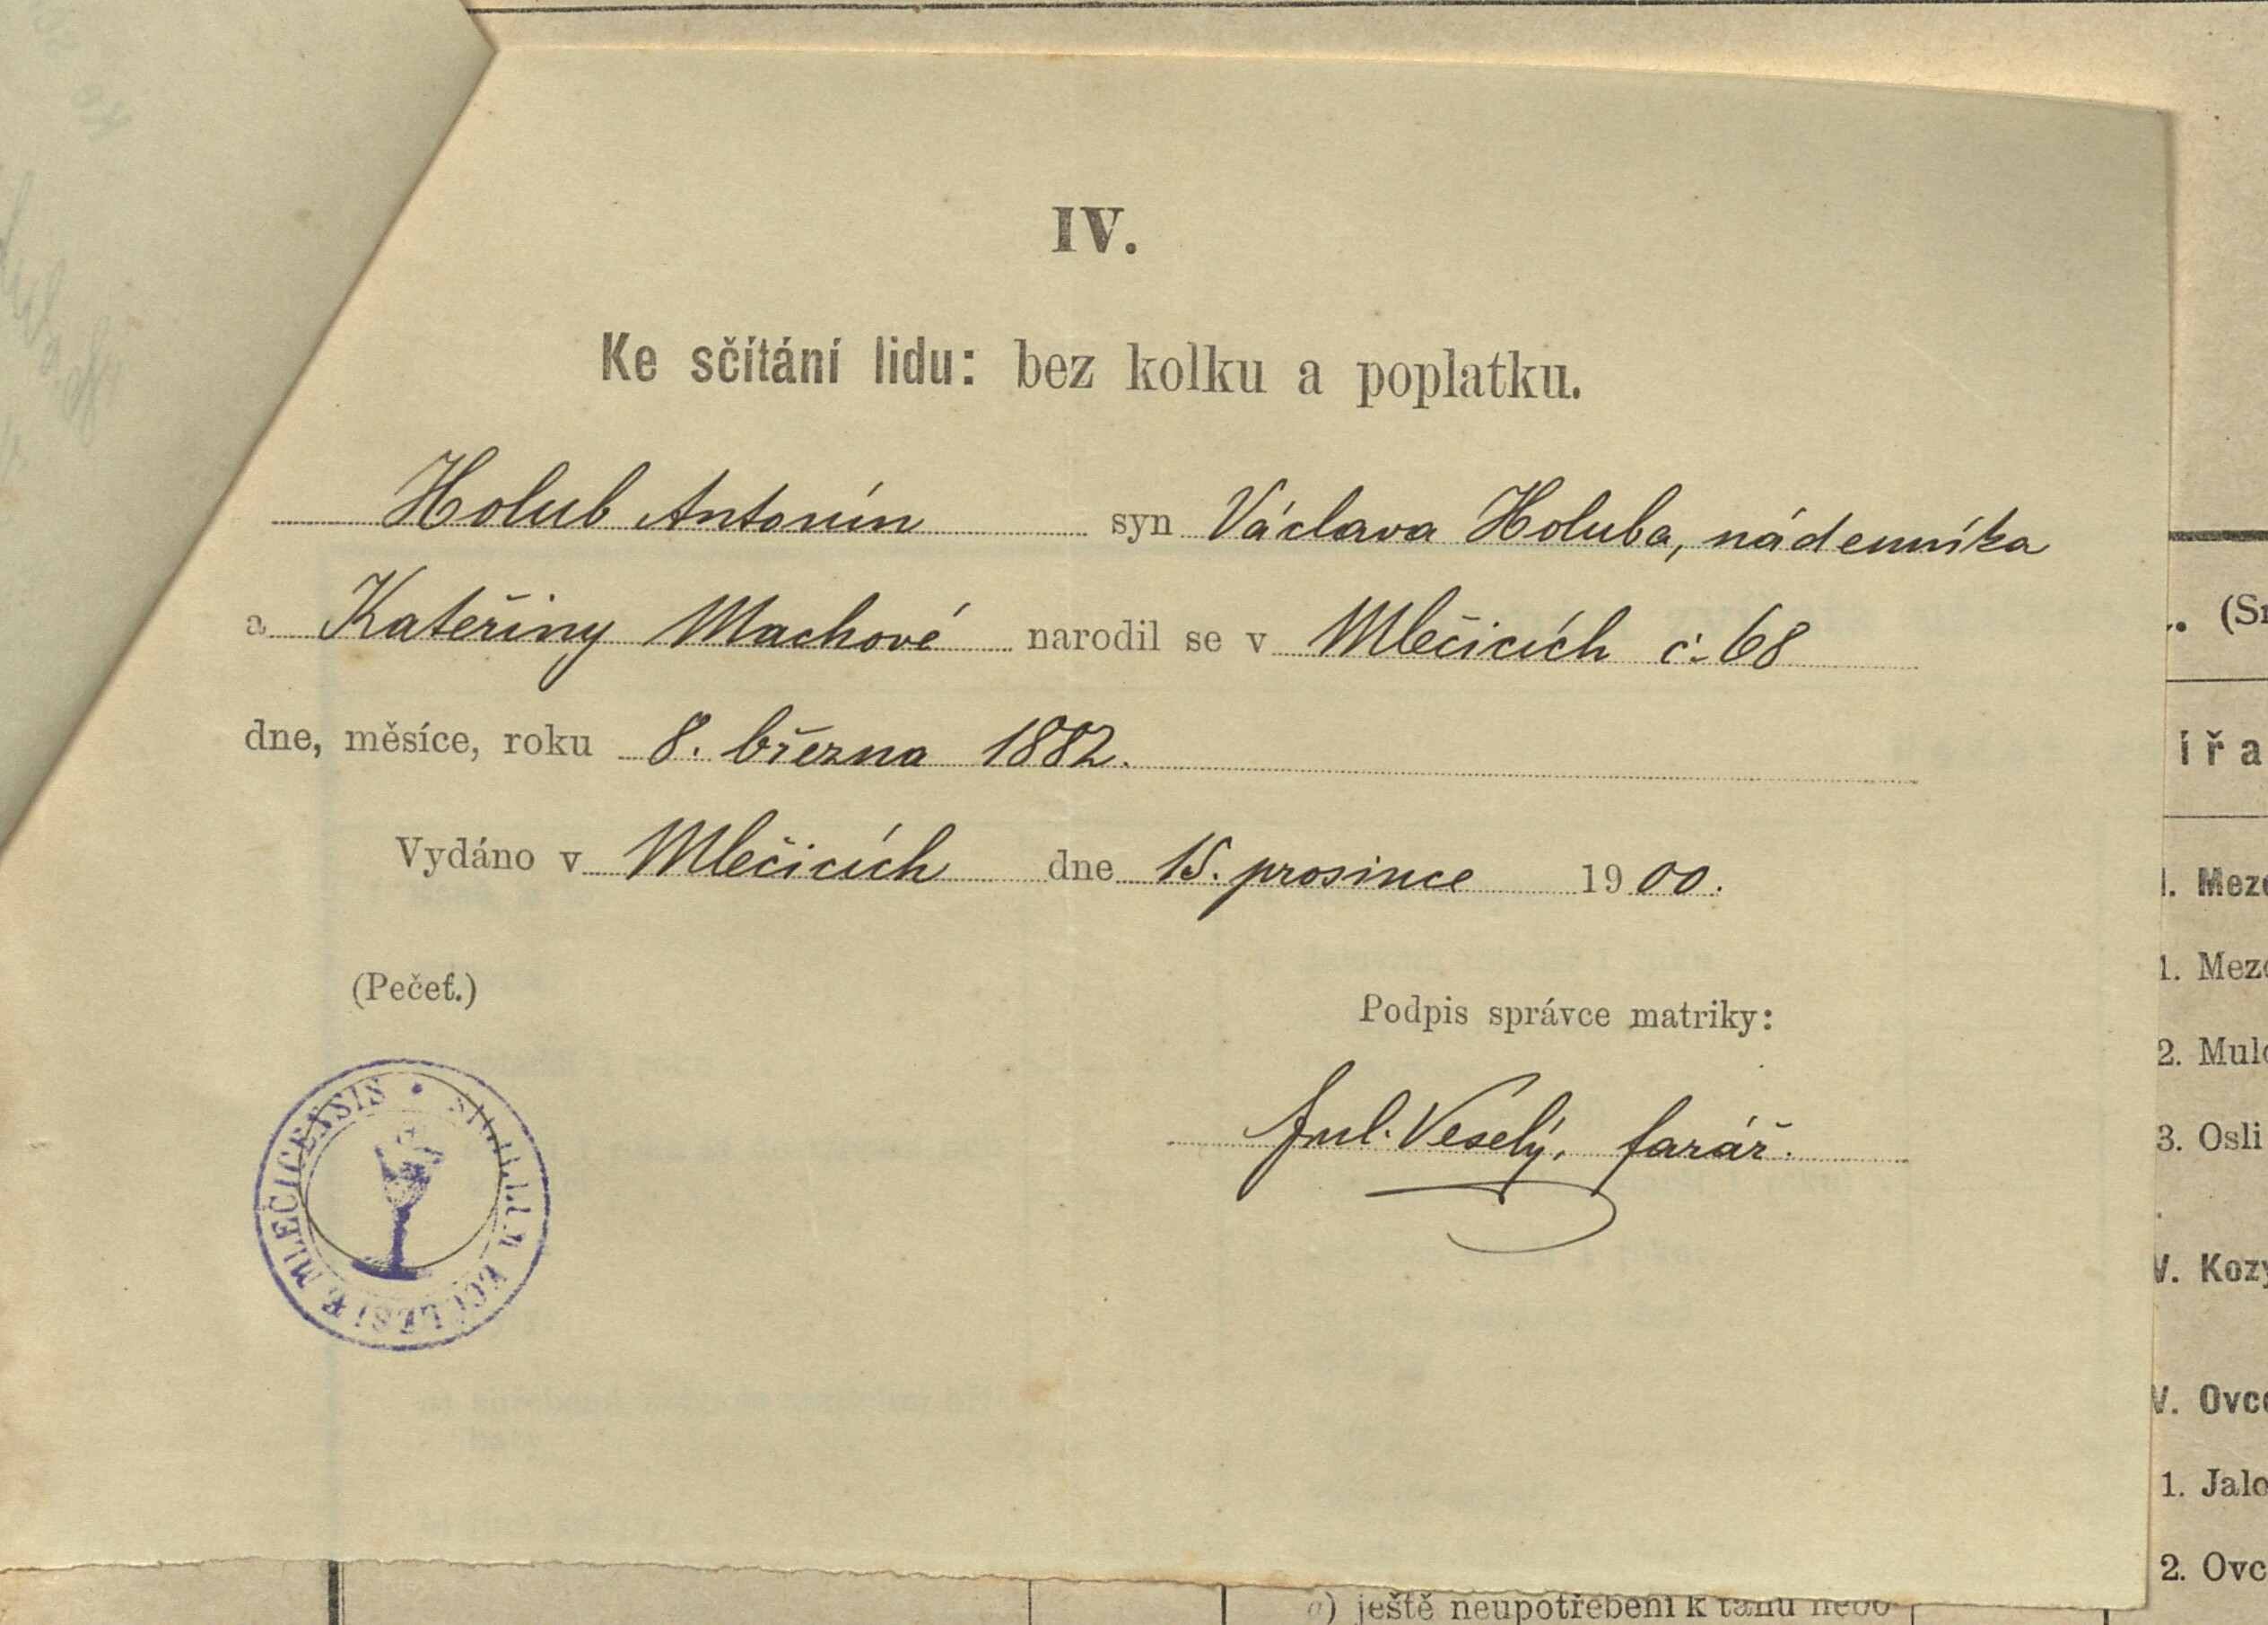 IV.
Ke sčítání lidu: bez kolku a poplatku.
Holub Antonín syn Václava Holuba, nádenníka
a Kateřiny Machové narodil se v Mlečicích č. 68
dne, měsíce, roku 8. března 1882.
Vydáno v Mlečicích dne 15. prosince 1900.
(Pečeť.)
Podpis správce matriky:
Jul. Veselý, farář.
SIGILLA ECCLESIÆ MLEČICENSIS
(Sr
ířa
I. Meze
1. Meze
2. Mulo
3. Osli
V. Kozy
V. Ovce
1. Jalo
2. Ovc
a) ještě neupotřebení k tahu nebo